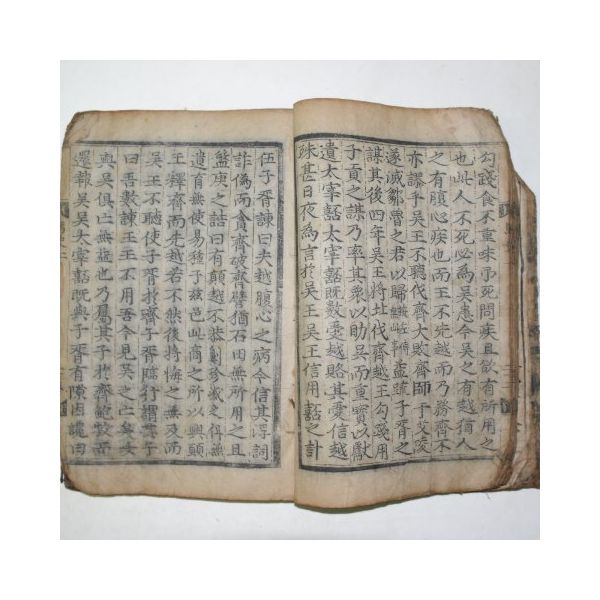 勾踐食不重味吊死問疾且欲有所用之
也此人不死必為吳患今吳之有越猶人
之有腹心疾也而王不先越而乃務齊不
亦謬乎吳王不聽伐齊大敗齊師於艾陵
遂滅鄒魯之君以歸益疏子胥之
謀其後四年吳王將北伐齊越王勾踐用
子貢之謀乃率其衆以助吳而重寶以獻
遺太宰嚭太宰嚭既數受越賂其愛信越
殊甚日夜為言於吳王吳王信用嚭之計
伍子胥諫曰夫越腹心之病今信其浮詞
詐偽而貪齊破齊譬猶石田無所用之且
盤庚之誥曰有顛越不恭劓殄滅之俾無
遺育無使易種于茲邑此商之所以興願
王釋齊而先越若不然後將悔之無及而
吳王不聽使子胥於齊子胥臨行謂其子
曰吾數諫王王不用吾今見吳之亡矣女
與吳俱亡無益也乃屬其子於齊鮑牧而
還報吳吳太宰嚭既與子胥有隙因讒曰